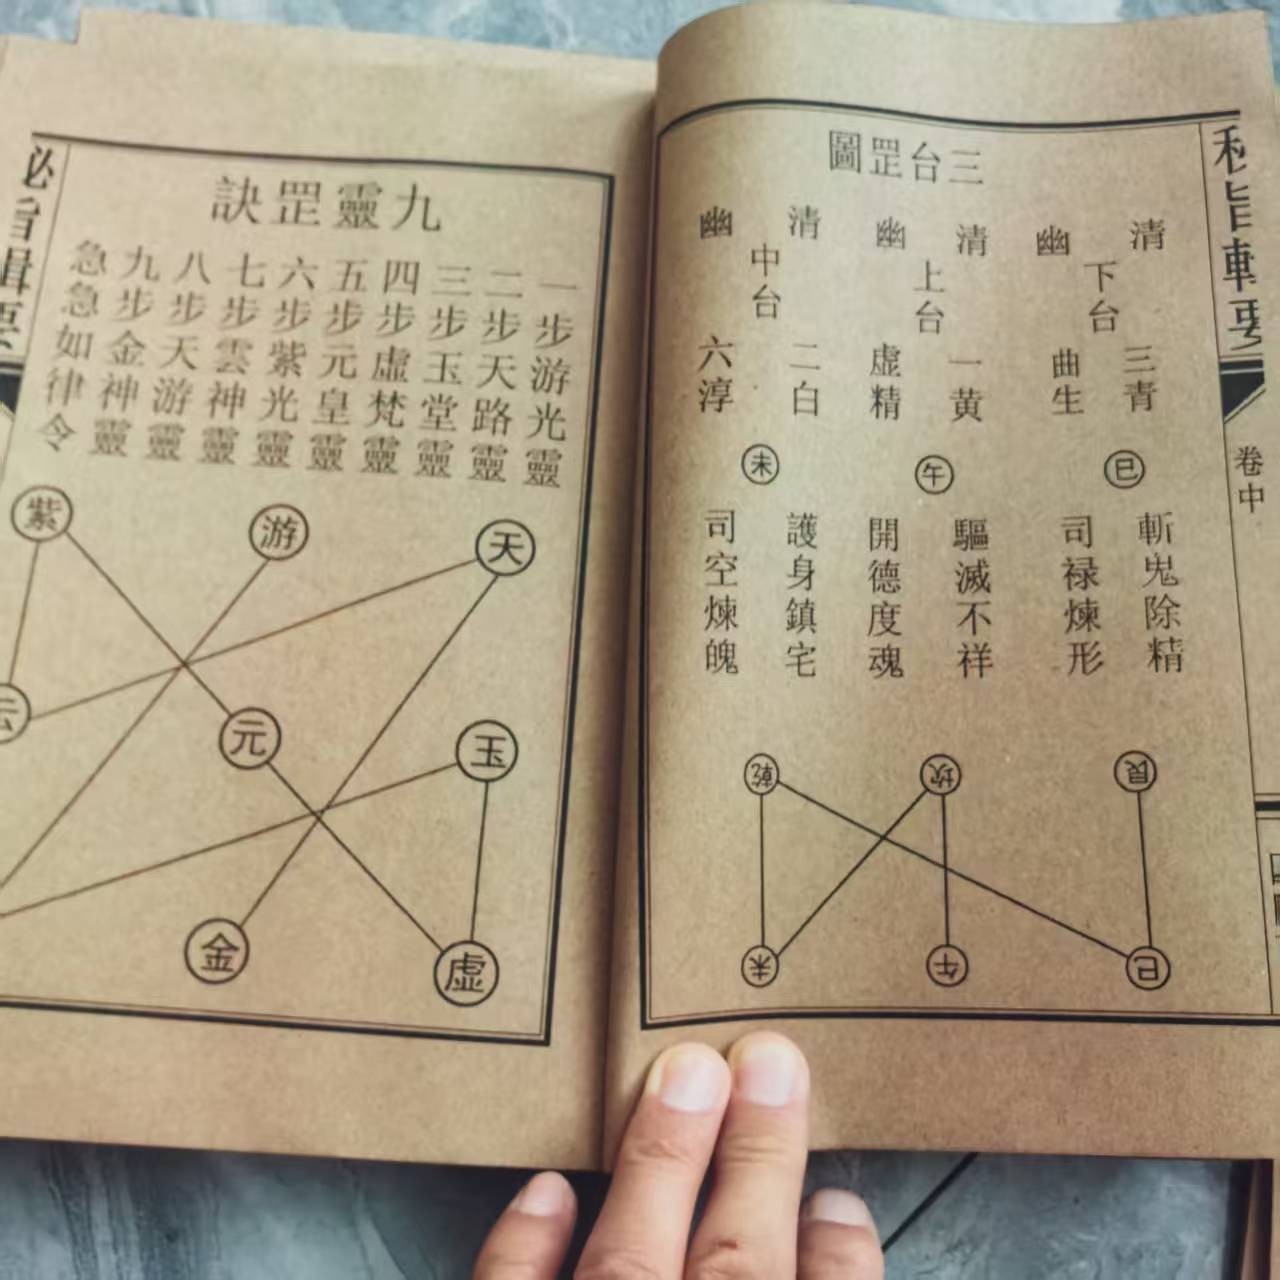 三台罡圖
清
幽
下台
三青
曲生
巳
斬鬼除精
司禄煉形
清
幽
上台
一黄
虚精
午
驅滅不祥
開德度魂
清
幽
中台
二白
六淳
未
護身鎮宅
司空煉魄
艮
坎
乾
巳
午
未
卷中
九靈罡訣
一步游光靈
二步天路靈
三步玉堂靈
四步虛梵靈
五步元皇靈
六步紫光靈
七步雲神靈
八步天游靈
九步金神靈
急急如律令
天
游
紫
玉
元
云
虚
金